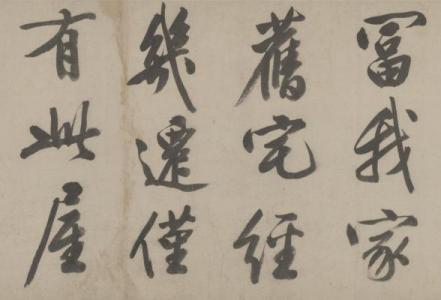 冨我家
舊宅經
幾遷僅
有此屋